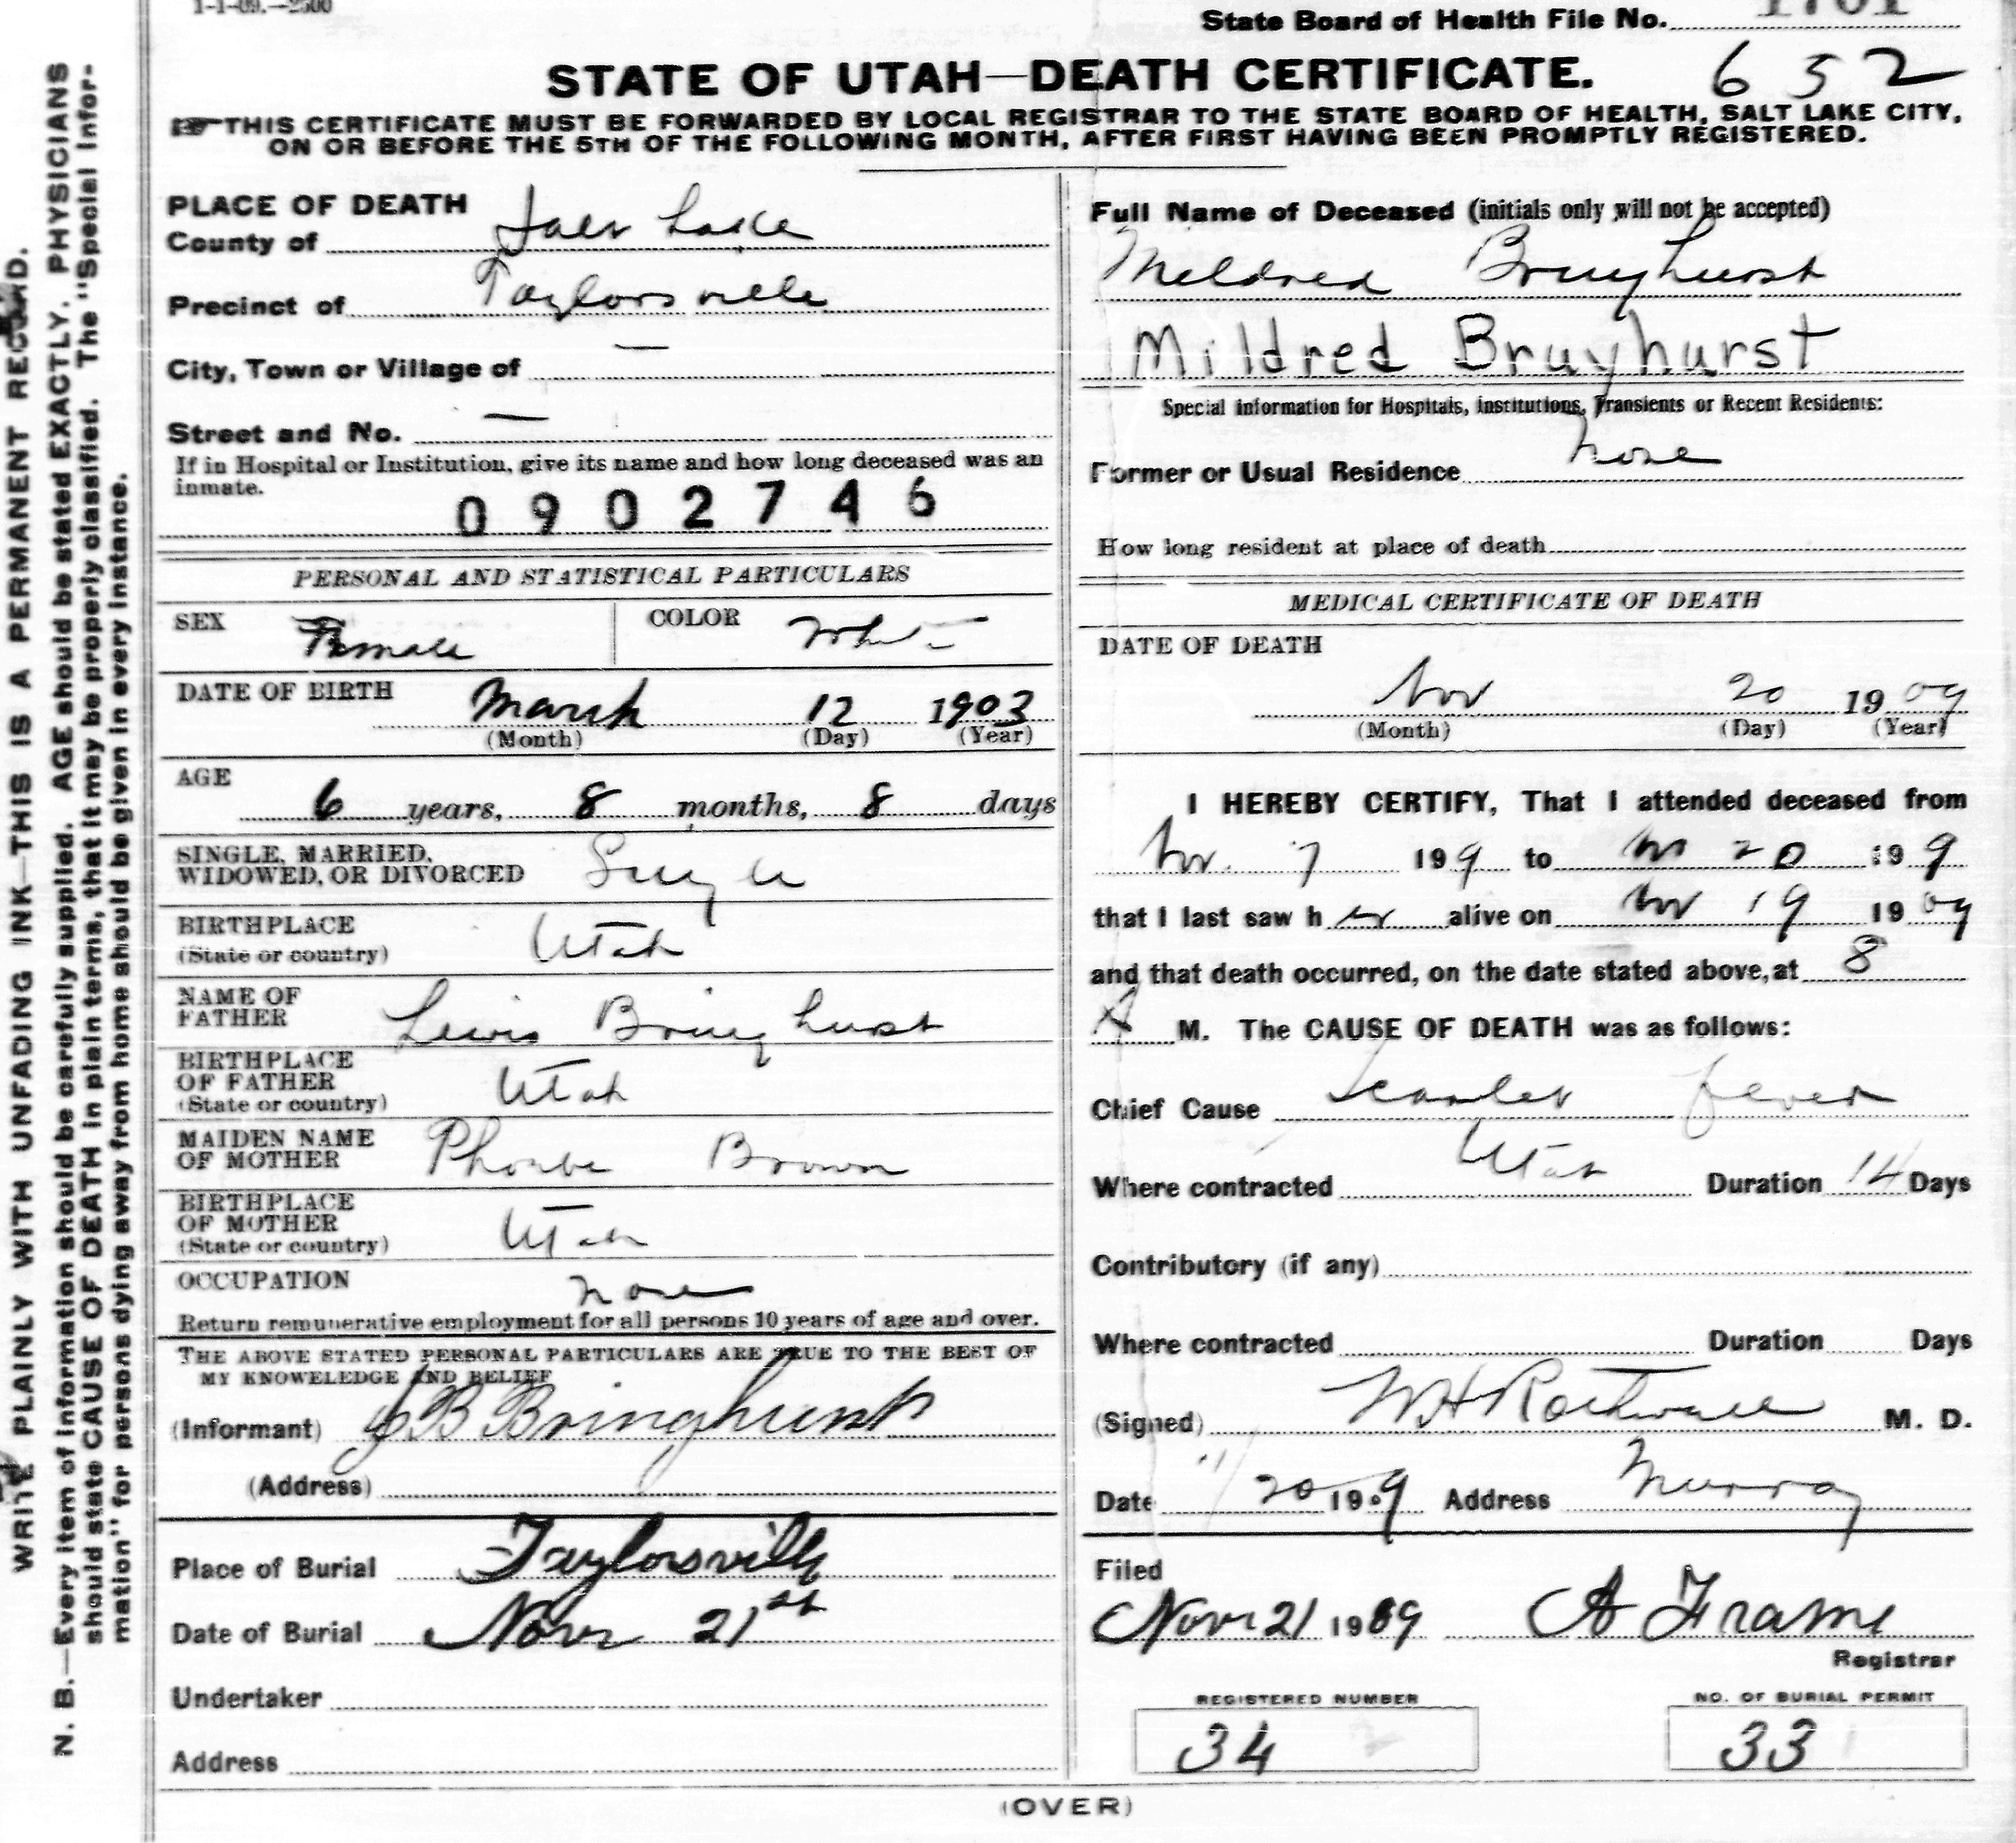 1-1-09.—2500
State Board of Health File No. 1761
STATE OF UTAH—DEATH CERTIFICATE. 652
THIS CERTIFICATE MUST BE FORWARDED BY LOCAL REGISTRAR TO THE STATE BOARD OF HEALTH, SALT LAKE CITY,
ON OR BEFORE THE 5TH OF THE FOLLOWING MONTH, AFTER FIRST HAVING BEEN PROMPTLY REGISTERED.
WRITE PLAINLY WITH UNFADING INK—THIS IS A PERMANENT RECORD.
N. B.—Every item of information should be carefully supplied. AGE should be stated EXACTLY. PHYSICIANS
should state CAUSE OF DEATH in plain terms, that it may be properly classified. The "Special Infor-
mation" for persons dying away from home should be given in every instance.
PLACE OF DEATH
County of Salt Lake
Precinct of Taylorsville
City, Town or Village of —
Street and No. —
If in Hospital or Institution, give its name and how long deceased was an
inmate.
0902746
PERSONAL AND STATISTICAL PARTICULARS
SEX Female COLOR White
DATE OF BIRTH March 12 1903
(Month) (Day) (Year)
AGE
6 years, 8 months, 8 days
SINGLE, MARRIED,
WIDOWED, OR DIVORCED Single
BIRTHPLACE
(State or country) Utah
NAME OF
FATHER Lewis Bringhurst
BIRTHPLACE
OF FATHER
(State or country) Utah
MAIDEN NAME
OF MOTHER Phoebe Brown
BIRTHPLACE
OF MOTHER
(State or country) Utah
OCCUPATION none
Return remunerative employment for all persons 10 years of age and over.
THE ABOVE STATED PERSONAL PARTICULARS ARE TRUE TO THE BEST OF
MY KNOWELEDGE AND BELIEF
(Informant) J B Bringhurst
(Address)
Place of Burial Taylorsville
Date of Burial Nov 21st
Undertaker
Address
Full Name of Deceased (initials only will not be accepted)
Mildred Bringhurst
Mildred Bruyhurst
Special information for Hospitals, institutions, Transients or Recent Residents:
Former or Usual Residence
How long resident at place of death
MEDICAL CERTIFICATE OF DEATH
DATE OF DEATH
Nov 20 1909
(Month) (Day) (Year)
I HEREBY CERTIFY, That I attended deceased from
Nov. 7 1909 to Nov 20 1909
that I last saw her alive on Nov 19 1909
and that death occurred, on the date stated above, at 8
A M. The CAUSE OF DEATH was as follows:
Chief Cause Scarlet fever
Where contracted Utah Duration 14 Days
Contributory (if any)
Where contracted Duration Days
(Signed) W H Rothwell M. D.
Date 11/20 1909 Address Murray
Filed
Nov 21 1909 A Frame
Registrar
REGISTERED NUMBER NO. OF BURIAL PERMIT
34 33
(OVER)